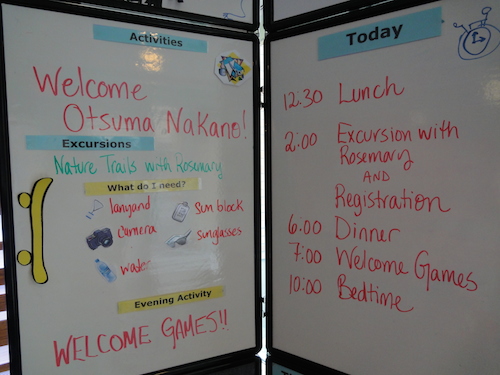 Activities
Welcome
Otsuma Nakano!
Excursions
Nature Trails with Rosemary
What do I need?
lanyard
Sun block
camera
sunglasses
water
Evening Activity
WELCOME GAMES!!
Today
12.30 Lunch
2:00 Excursion with
Rosemary
AND
Registration
6.00 Dinner
7:00 Welcome Games
10:00 Bedtime